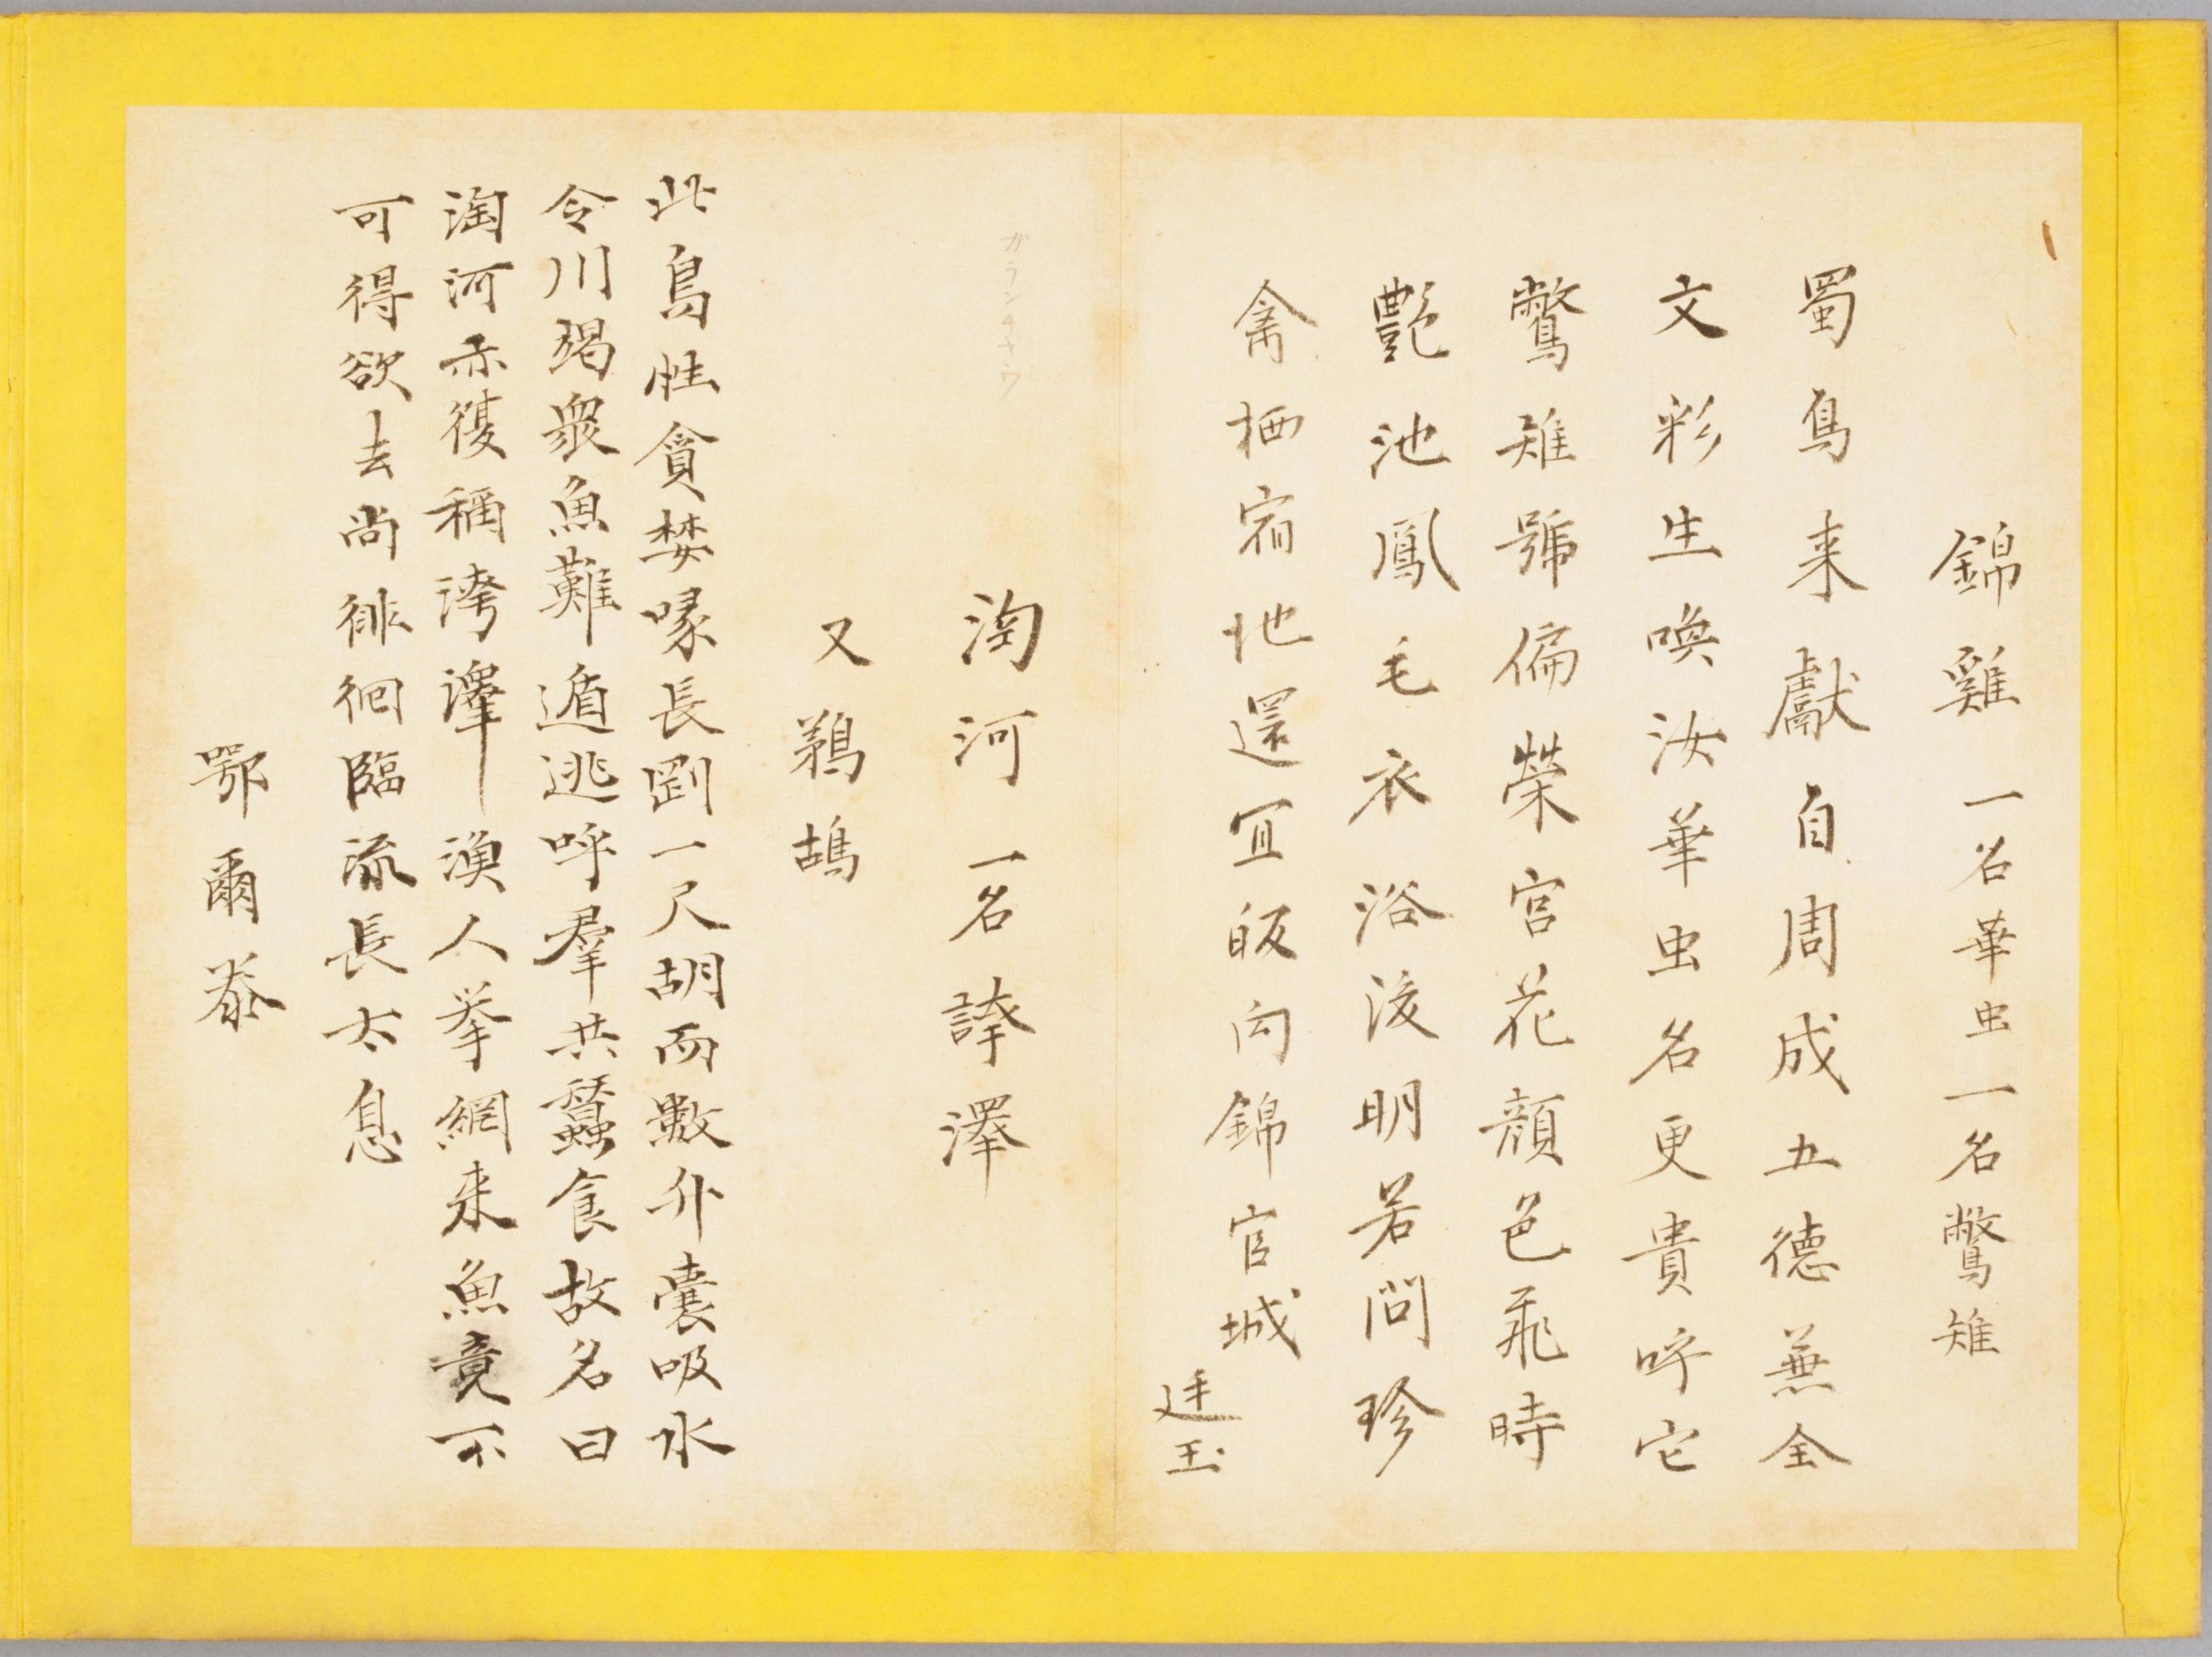 錦雞 一名華虫一名鷩雉
蜀鳥来獻自周成五德兼全
文彩生喚汝華虫名更貴呼它
鷩雉號偏榮宮花顏色飛時
艷池鳳毛衣浴後明若問珍
禽栖宿地還宜皈向錦官城
廷玉
ガランチヤウ
淘河 一名誇澤
又鵜鴣
此鳥性貪婪喙長劉一尺胡而數升囊吸水
令川竭衆魚難遁逃呼羣共蠶食故名曰
淘河亦復稱洿澤漁人举網来魚竟不
可得欲去尚徘徊臨流長太息
鄂爾泰